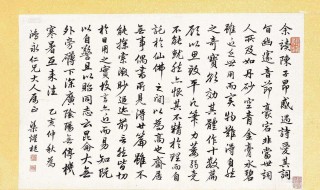 余讀陳子昂感遇詩愛其詞
旨幽邃音節豪宕非當世詞
人所及如丹砂空青金膏水碧
雖近乏世用而實物難得自然
之奇寶欲效其體作十數篇
顧以思致平凡筆力萎弱竟
不能就然亦恨其不精於理而自
託於仙佛之間以為高也齋居
無事偶書所見得廿篇雖不
能探索微眇追迹前言然皆切
於日用之實故言亦近而易知既
以自警且以貽同志云昆侖大無
外旁礴下深廣陰陽無停機
寒暑互來往 乙亥仲秋
仁兄大人属正 梁耀樞